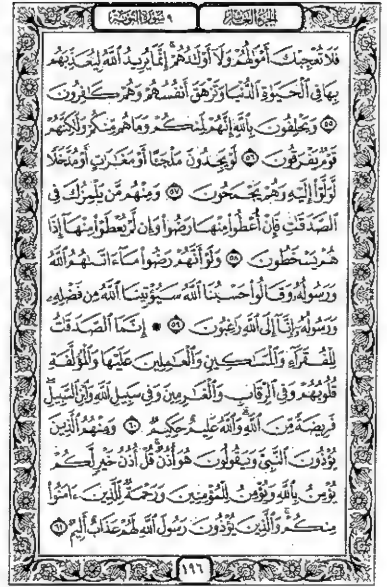 الجزء العاشر ٩ سورة التوبة
فَلَا تُعْجِبْكَ أَمْوَٰلُهُمْ وَلَآ أَوْلَٰدُهُمْ إِنَّمَا يُرِيدُ ٱللَّهُ لِيُعَذِّبَهُم
بِهَا فِى ٱلْحَيَوٰةِ ٱلدُّنْيَا وَتَزْهَقَ أَنفُسُهُمْ وَهُمْ كَٰفِرُونَ
٥٥ وَيَحْلِفُونَ بِٱللَّهِ إِنَّهُمْ لَمِنكُمْ وَمَا هُم مِّنكُمْ وَلَٰكِنَّهُمْ
قَوْمٌ يَفْرَقُونَ ٥٦ لَوْ يَجِدُونَ مَلْجَـًٔا أَوْ مَغَٰرَٰتٍ أَوْ مُدَّخَلًا
لَّوَلَّوْا۟ إِلَيْهِ وَهُمْ يَجْمَحُونَ ٥٧ وَمِنْهُم مَّن يَلْمِزُكَ فِى
ٱلصَّدَقَٰتِ فَإِنْ أُعْطُوا۟ مِنْهَا رَضُوا۟ وَإِن لَّمْ يُعْطَوْا۟ مِنْهَآ إِذَا
هُمْ يَسْخَطُونَ ٥٨ وَلَوْ أَنَّهُمْ رَضُوا۟ مَآ ءَاتَىٰهُمُ ٱللَّهُ
وَرَسُولُهُۥ وَقَالُوا۟ حَسْبُنَا ٱللَّهُ سَيُؤْتِينَا ٱللَّهُ مِن فَضْلِهِۦ
وَرَسُولُهُۥٓ إِنَّآ إِلَى ٱللَّهِ رَٰغِبُونَ ٥٩ ۞ إِنَّمَا ٱلصَّدَقَٰتُ
لِلْفُقَرَآءِ وَٱلْمَسَٰكِينِ وَٱلْعَٰمِلِينَ عَلَيْهَا وَٱلْمُؤَلَّفَةِ
قُلُوبُهُمْ وَفِى ٱلرِّقَابِ وَٱلْغَٰرِمِينَ وَفِى سَبِيلِ ٱللَّهِ وَٱبْنِ ٱلسَّبِيلِ
فَرِيضَةً مِّنَ ٱللَّهِ وَٱللَّهُ عَلِيمٌ حَكِيمٌ ٦٠ وَمِنْهُمُ ٱلَّذِينَ
يُؤْذُونَ ٱلنَّبِىَّ وَيَقُولُونَ هُوَ أُذُنٌ قُلْ أُذُنُ خَيْرٍ لَّكُمْ
يُؤْمِنُ بِٱللَّهِ وَيُؤْمِنُ لِلْمُؤْمِنِينَ وَرَحْمَةٌ لِّلَّذِينَ ءَامَنُوا۟
مِنكُمْ وَٱلَّذِينَ يُؤْذُونَ رَسُولَ ٱللَّهِ لَهُمْ عَذَابٌ أَلِيمٌ ٦١
١٩٦